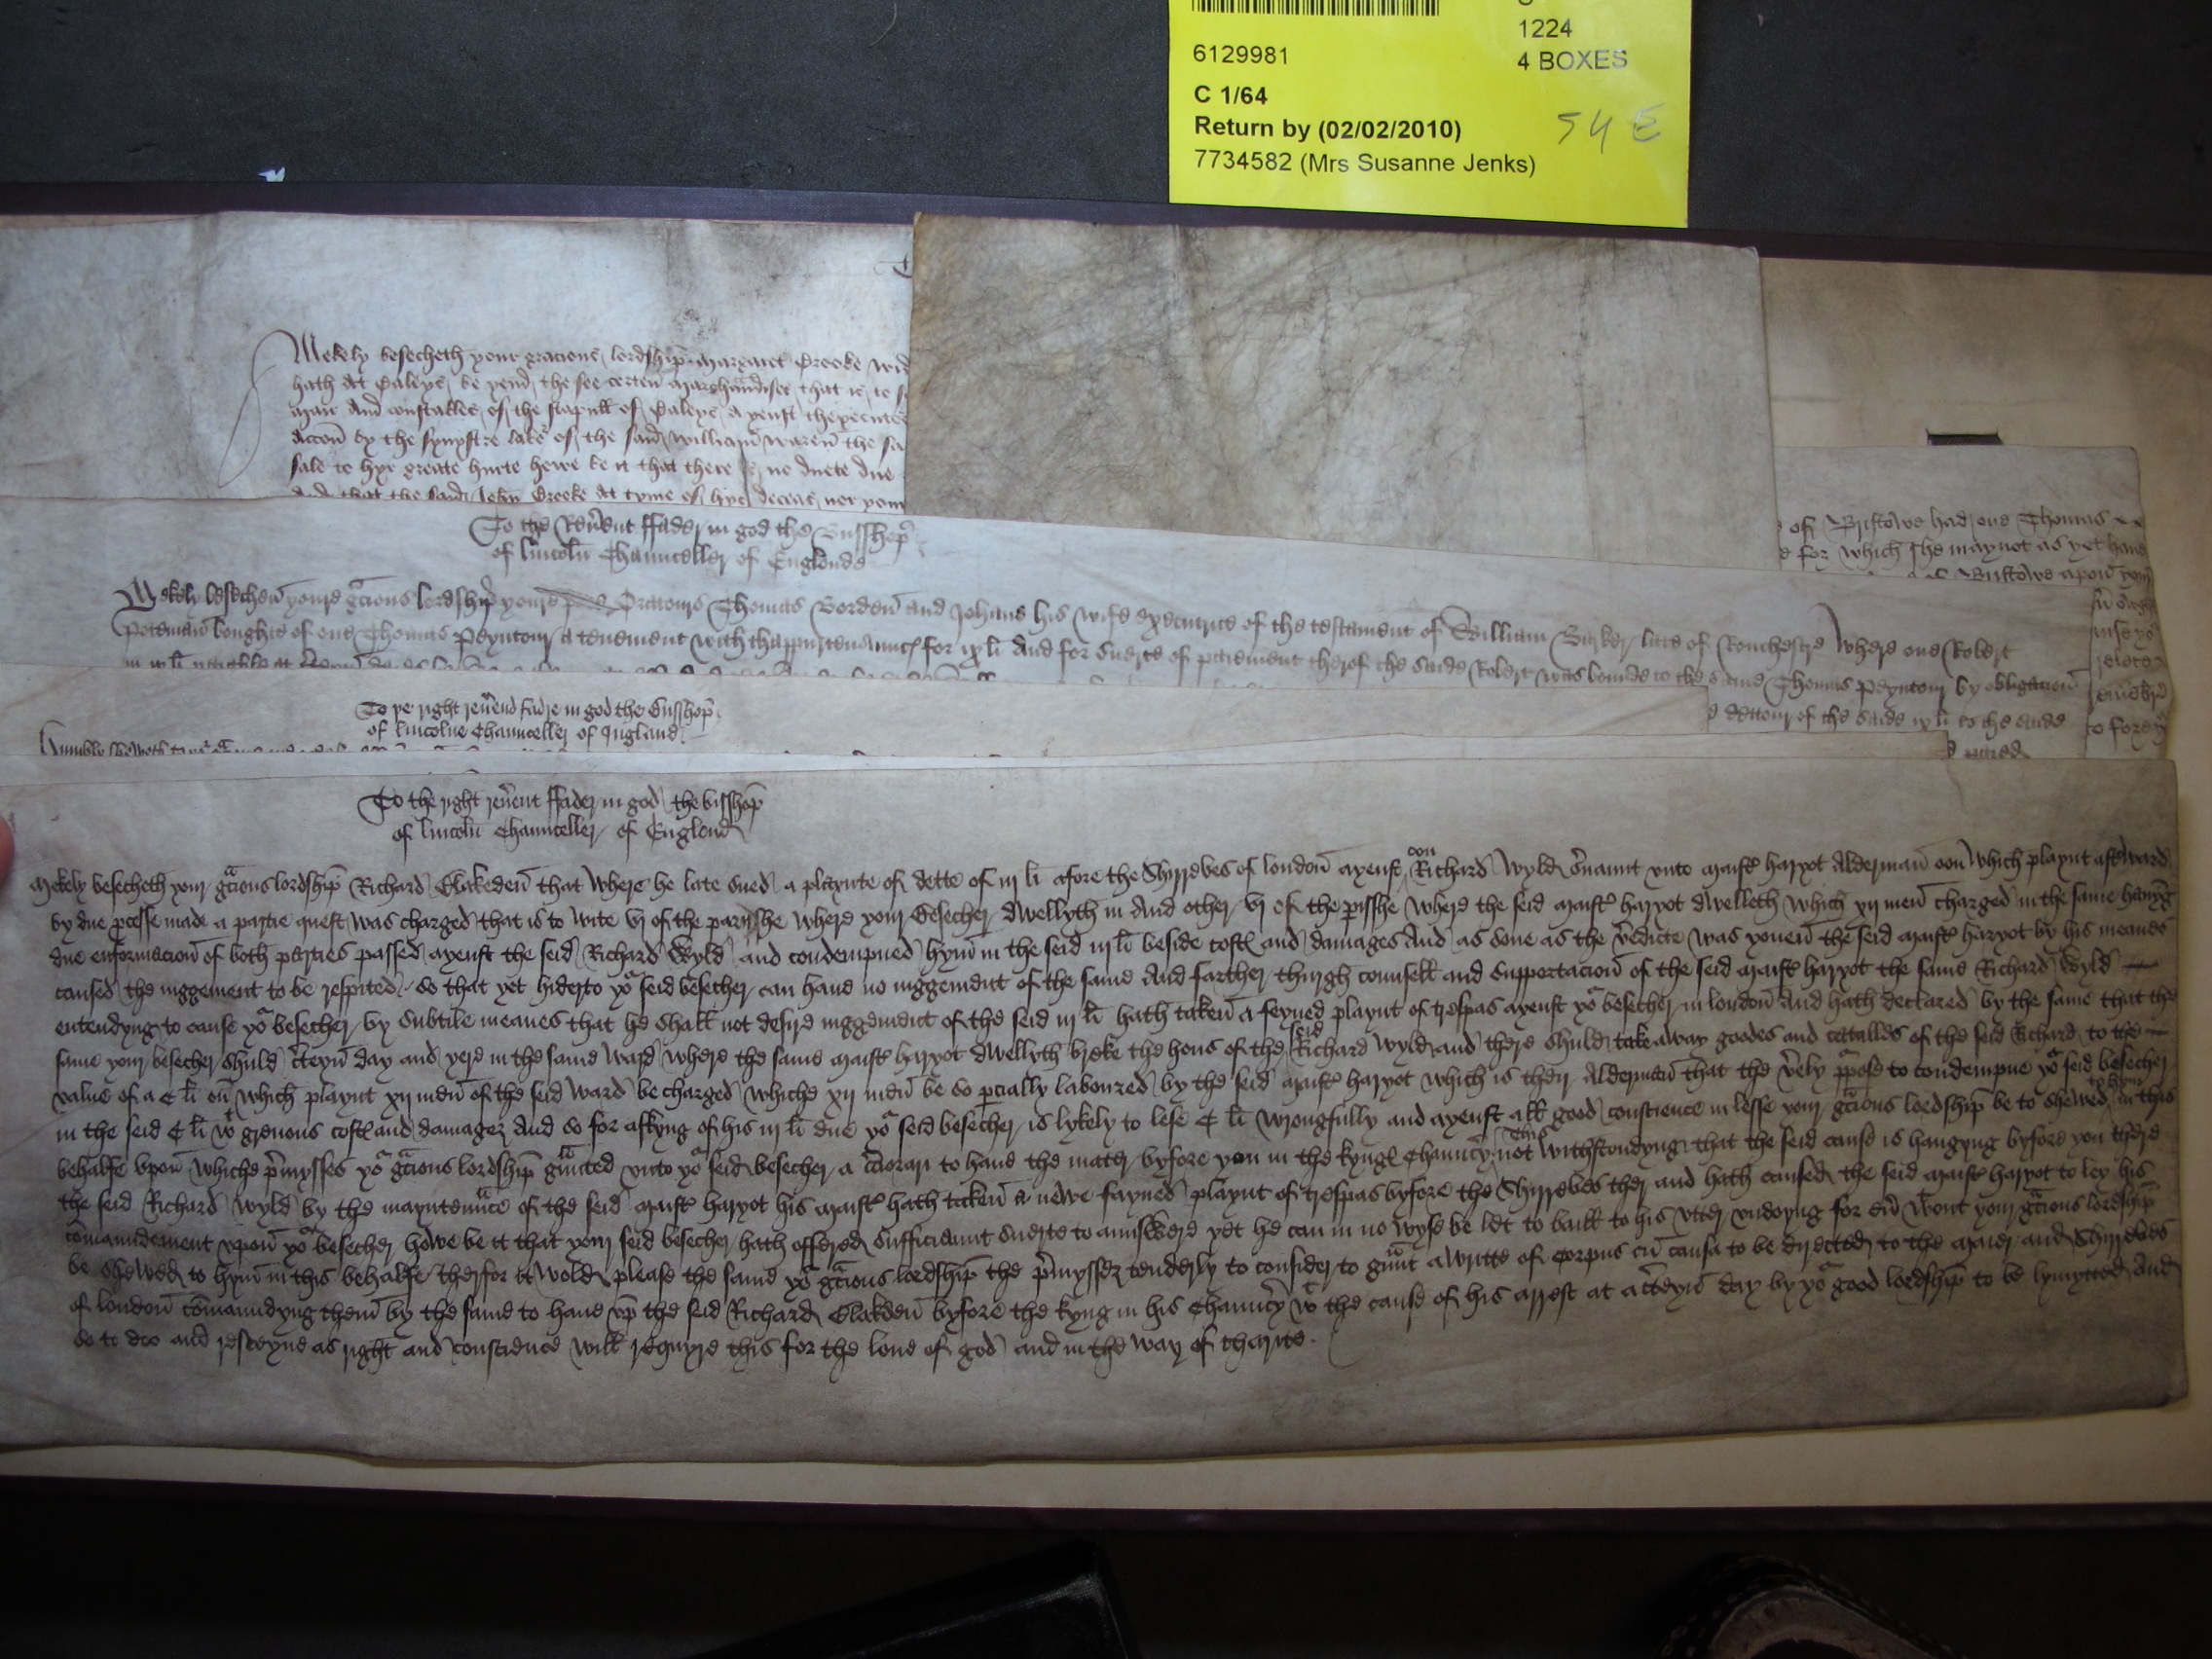 1224
6129981
4 BOXES
C 1/64
Return by (02/02/2010)
54 E
7734582 (Mrs Susanne Jenks)
Mekely besecheth your gracious lordship Margaret Crooke wid
hath at Caleys be yend the see certen marchandises that is to s
mair and constables of the stapull of Caleys ayenst
accon by the late of the said William Waren the sa
sale to hyr greate hurte howe be it that there is no duete due
And that the said John Crooke at tyme of hys deceas nor yem
of Bristowe had one Thomas
e for which she may not as yet haue
Bristowe apon
To the Reu'ent ffader in god the Busshop
of Lincoln Chaunceller of Englonde
Mekely besechen youre g'cious lordship youre Oratours Thomas Borden and Johane his wife executrice of the testament of William Barker late of Rouchestre Where one Robert
Pedeman boughte of one Thomas Peyntour a tenement with thappurtenaunces for ix li And for suerte of paiement therof the saide Robert was bounde to the same Thomas Peyntour by obligacion
dettour of the saide ix li to the saide
to fore
To ye right reu'end fadre in god the Busshop
of Lincolne Chaunceller of Ingland
Humbly sheweth
To the right reu'ent ffader in god the bisshop
of lincoln Chaunceller of Englond
Mekely besecheth your g'cious lordship Richard Clakeden that where he late sued a playnte of dette of iij li afore the Shirreves of london ayenst oon Richard Wyld s'uaunt vnto maist' haryot Alderman oon which playnt aft'ward
by due p'cesse made a partie quest was charged that is to wite vj of the parisshe where your besecher dwellyth in And other vj of the p'isshe where the seid maist' haryot dwelleth which xij men charged in the same havyng
due enformacion of both parties passed ayenst the seid Richard Wyld and condempned hym in the seid iij li beside costes and damages And as sone as the v'edicte was yoven the seid maist' haryot by his meanes
caused the iuggement to be respited so that yet hiderto yo' seid besecher can haue no iuggement of the same And farther thurgh counsell and supportacion of the seid maist' haryot the same Richard Wyld
entendyng to cause yo' besecher by subtile meanes that he shall not desire iuggement of the seid iij li hath taken a feyned playnt of trespas ayenst yo' besecher in london And hath declared by the same that the
same your besecher shuld c'teyn day and yere in the same ward where the same maist' haryot dwellyth breke the hous of the seid Richard Wyld and there shuld take away goodes and catalles of the seid Richard to the
value of a C li on which playnt xij men of the seid ward be charged whiche xij men be so p'cially laboured by the seid maist' haryot which is their Alderman that the v'ely p'pose to condempne yo' seid besecher
in the seid C li wt greuous costes and damages And so for askyng of his iij li due yo' seid besecher is lykely to lese C li wrongfully and ayenst all good conscience in lesse your g'cious lordship be to shewed to hym in this
behalfe vpon whiche p'mysses yo' g'cious lordship g'nted vnto yo' seid besecher a c'ciorari to haue the mater byfore you in the kynges Chauncery This not withstondyng that the seid cause is hangyng byfore you there
the seid Richard Wyld by the mayntenance of the seid maist' haryot his maist' hath taken a newe fayned playnt of trespas byfore the Shirreves ther and hath caused the seid maist' haryot to ley his
comaundement vpon yo' besecher howe be it that your seid besecher hath offered sufficiaunt suerte to aunswere yet he can in no wyse be let to baill to his vtter vndoyng for eu' wtout your g'cious lordship
be shewed to hym in this behalfe therfor it wold please the same yo' g'cious lordship the p'mysses tenderly to consider to g'unt a writte of Corpus cu' causa to be directed to the maier and Shirreves
of london comaundyng them by the same to haue vp the seid Richard Clakden byfore the kyng in his Chauncery wt the cause of his arrest at a c'teyn day by yo' good lordship to be lymytted And
so to doo and resceyue as right and conscience will requyre this for the loue of god and in the way of charite